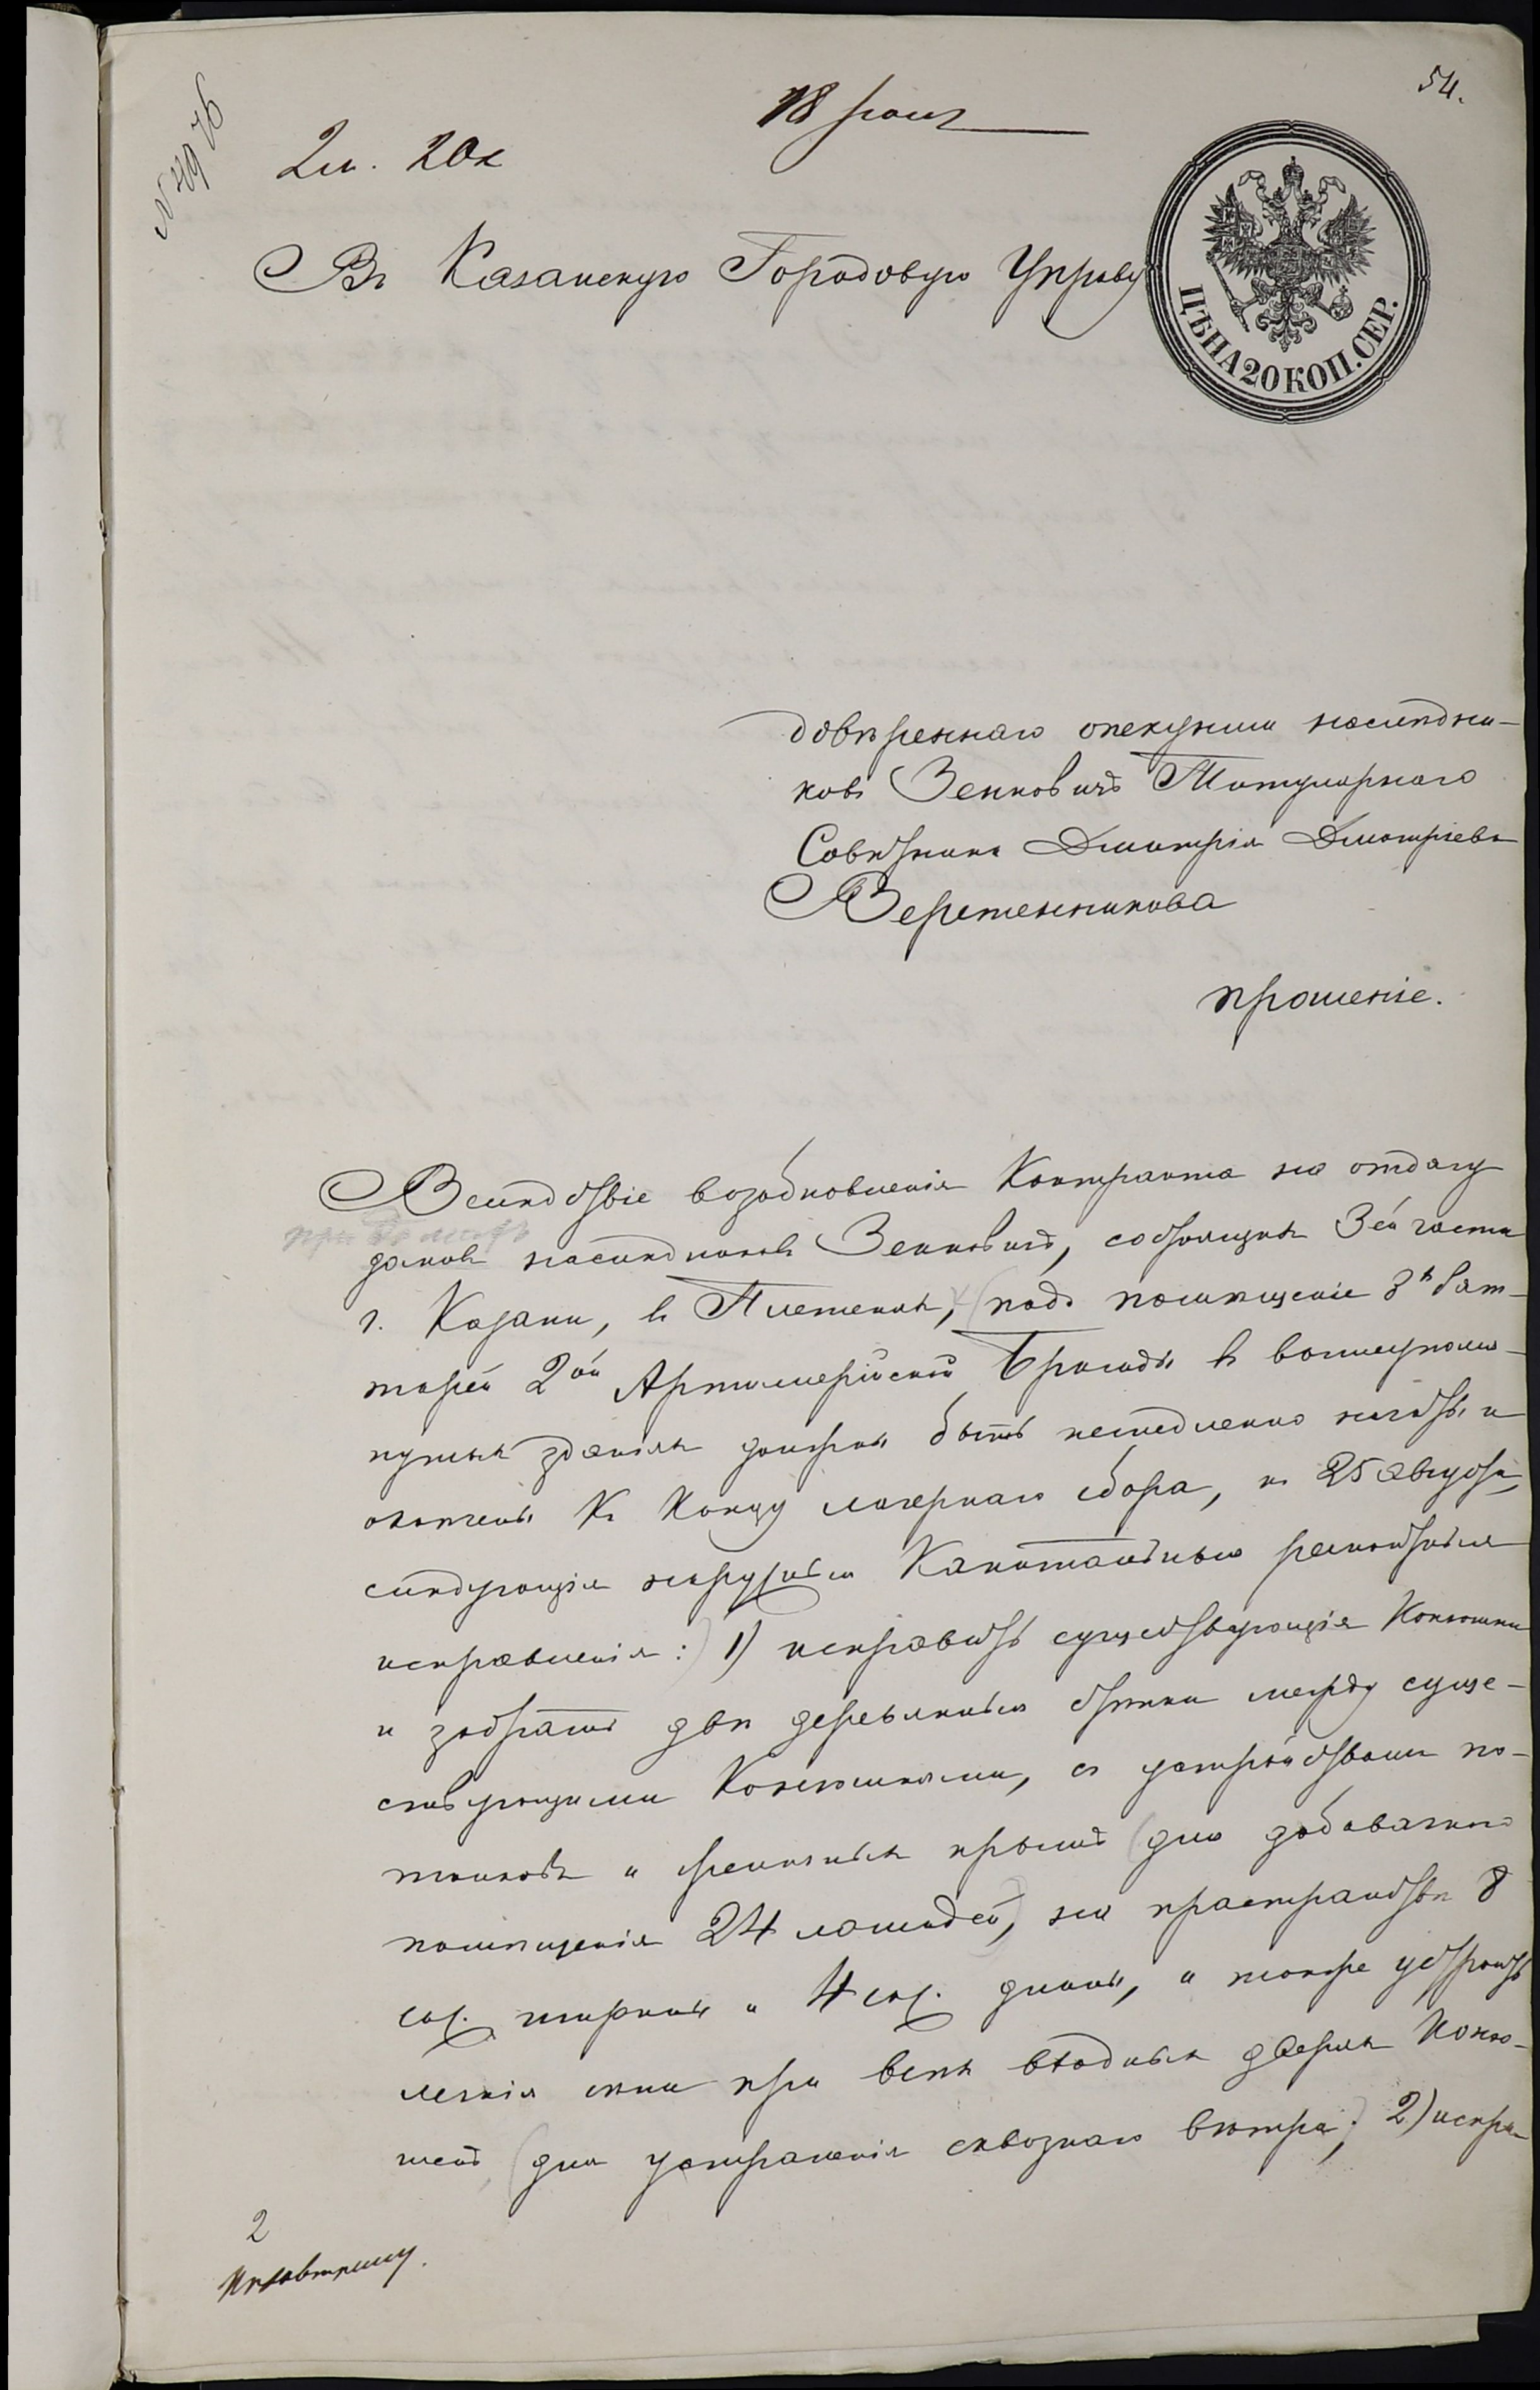 54.
18 июля
№ 4976
2 м. 20 к
Въ Казанскую Городовую Управу
ЦѢНА 20 КОП. СЕР.
довѣреннаго опекунши наслѣдни-
ковъ Зенковичъ Титулярнаго
Совѣтника Дмитрія Дмитріева
Веретенникова
прошеніе.
Вслѣдствіе возобновленія Контракта на отдачу
домовъ наслѣдниковъ Зенковичъ, состоящихъ 3ей части
г. Казани, въ Плетеняхъ, (подъ помѣщеніе 3хъ бат-
тарей 2ой Артиллерійской Бригады въ вышеупомя-
нутыхъ зданіяхъ должны быть немедленно начаты и
окончены къ концу лагернаго сбора, къ 25 августа,
слѣдующія наружныя Капитальныя ремонтныя
исправленія: 1) исправить существующія Конюшни
и забрать двѣ деревянныя стѣнки между суще-
ствующими Конюшнями, съ устройствомъ по-
толковъ и крышъ (для добавочнаго
помѣщенія 24 лошадей), на пространствѣ 8
саж. ширины и 4 саж. длины, а также устроить
легкія сѣни при всѣхъ входныхъ дверяхъ Коню-
шенъ (для устраненія сквознаго вѣтра); 2) испра-
2